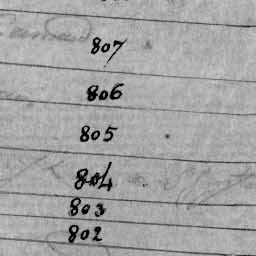 807
806
805
804
803
802